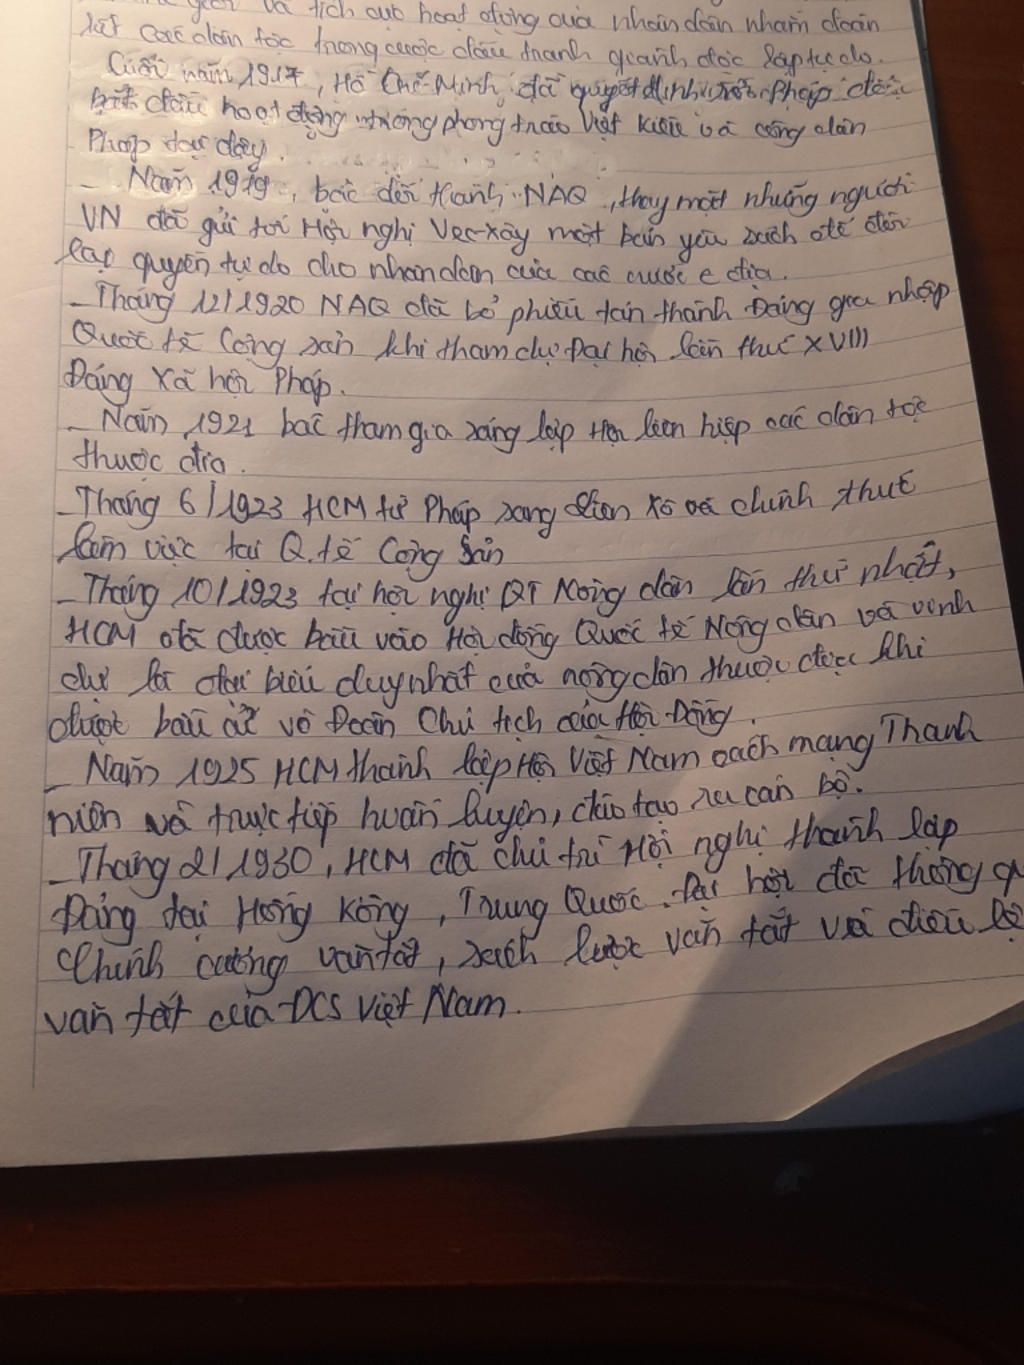 và tích cực hoạt động của nhân dân nhằm đoàn
kết các dân tộc trong cuộc đấu tranh giành độc lập tự do.
Cuối năm 1917, Hồ Chí Minh đã quyết định Pháp
bắt đầu hoạt động trong phong trào Việt kiều và công dân
Pháp tại đây.
- Năm 1919, bác đổi thành NAQ, thay mặt những người
VN đã gửi tới Hội nghị Vec-xây một bản yêu sách
lập quyền tự do cho nhân dân của các nước địa.
- Tháng 12/1920 NAQ đã bỏ phiếu tán thành Đảng gia nhập
Quốc tế Cộng sản khi tham dự Đại hội lần thứ XVIII
Đảng Xã hội Pháp.
- Năm 1921 bác tham gia sáng lập Hội liên hiệp các dân tộc
thuộc địa.
- Tháng 6/1923 HCM từ Pháp sang Liên Xô và chính thức
làm việc tại Q.tế Cộng Sản
- Tháng 10/1923 tại hội nghị QT Nông dân lần thứ nhất,
HCM đã được bầu vào Hội đồng Quốc tế Nông dân và vinh
dự là đại biểu duy nhất của nông dân thuộc địa khi
được bầu vô Đoàn Chủ tịch của Hội Đồng.
- Năm 1925 HCM thành lập Hội Việt Nam cách mạng Thanh
niên và trực tiếp huấn luyện, đào tạo ra cán bộ.
- Tháng 2/1930, HCM đã chủ trì Hội nghị thành lập
Đảng tại Hồng Kông, Trung Quốc. Đại hội đã thông q
Chính cương vắn tắt, sách lược vắn tắt và điều lệ
vắn tắt của ĐCS Việt Nam.